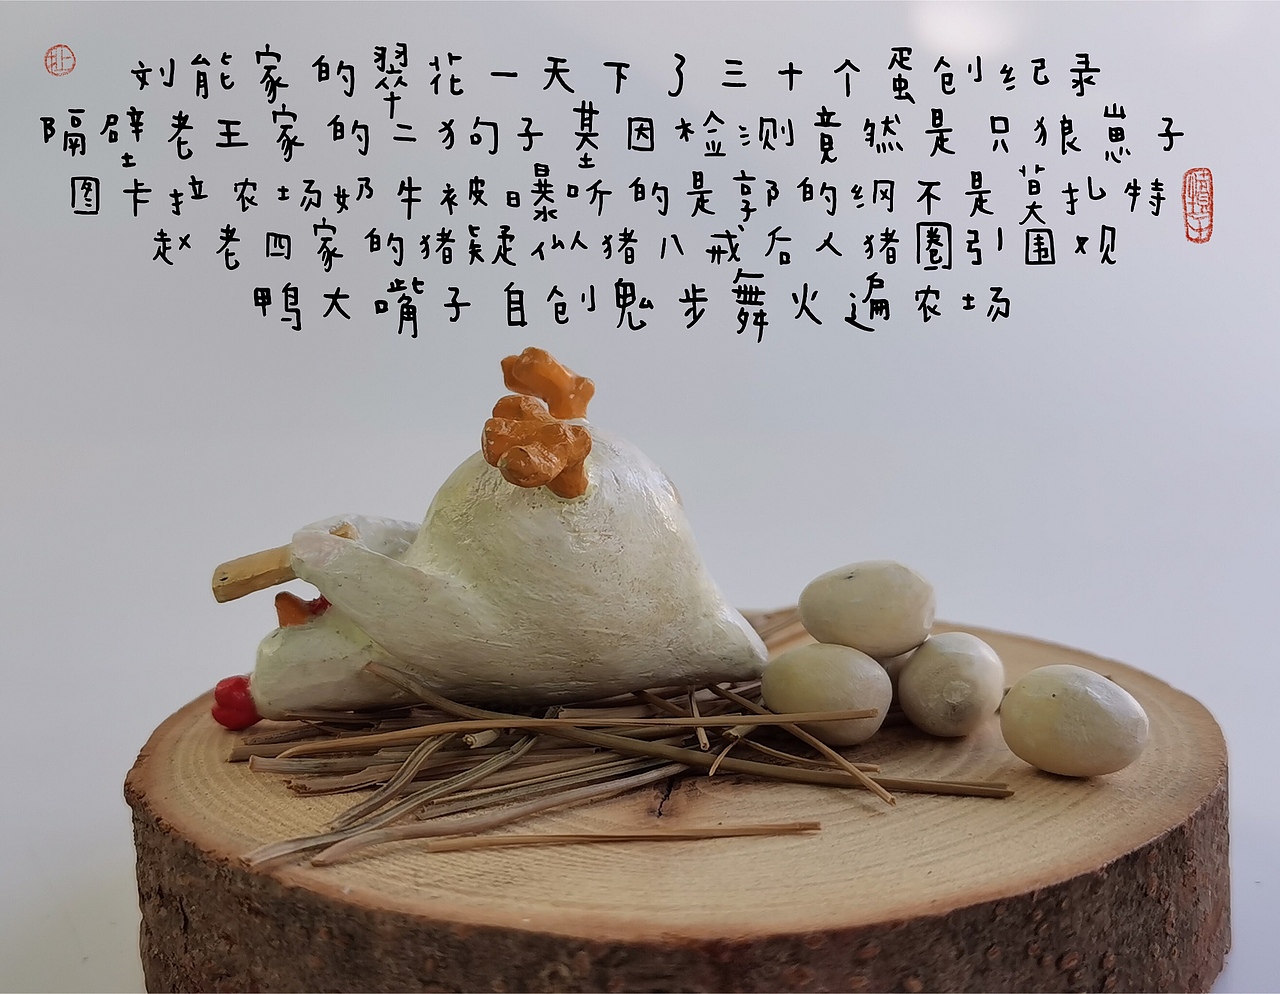 刘能家的翠花一天下了三十个蛋创纪录
隔壁老王家的二狗句子基因检测竟然是只狼崽子
图卡拉农场奶牛被曝听的是郭的纲不是莫扎特
赵老四家的猪疑似猪八戒后人猪圈引围观
鸭大嘴子自创鬼步舞火遍农场